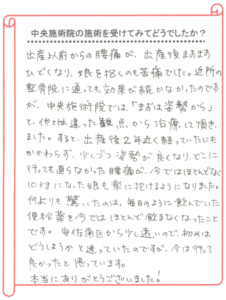 中央施術院の施術を受けてみてどうでしたか?
出産以前からの腰痛が、出産後ますます
ひどくなり、娘を抱くのも苦痛でした。近所の
整骨院に通っても効果が続かなかったのです
が、中央施術院では、「まずは姿勢から」
と、他とは違った観点から治療して頂き
ました。すると、出産後2年近く経っていたにも
かかわらず、少しづつ姿勢が良くなり、どこに
行っても直らなかった腰痛が、今ではほとんどなく
10kgになった娘も楽に抱けるようになりました。
何よりも驚いたのは、毎日のように飲んでいた
便秘薬を今ではほとんど飲まなくなったこと
です。安佐南区から少し遠いので、初めは
どうしようかと迷っていたのですが、今は行って
良かったと思っています。
本当にありがとうございました!